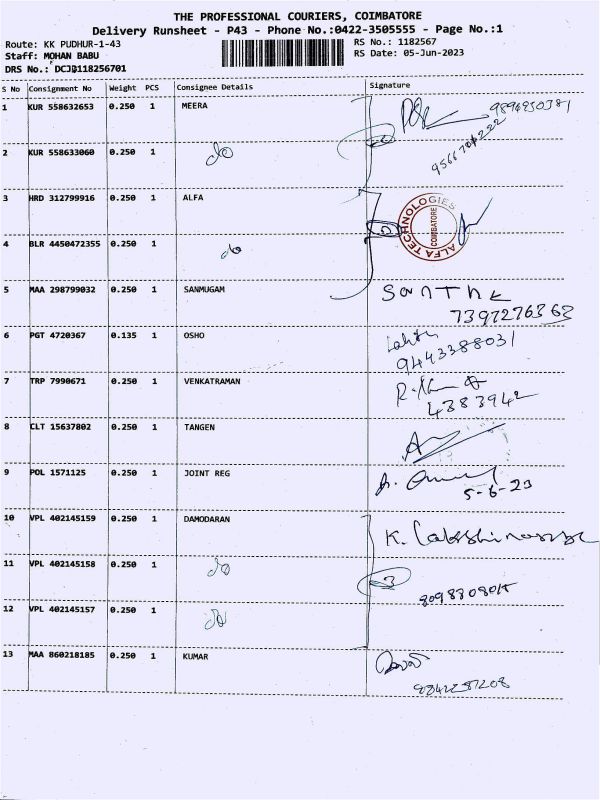 THE PROFESSIONAL COURIERS, COIMBATORE
Delivery Runsheet - P43 - Phone No.:0422-3505555 - Page No.:1
Route: KK PUDHUR-1-43 RS No.: 1182567
Staff: MOHAN BABU RS Date: 05-Jun-2023
DRS No.: DCJB118256701
S No Consignment No Weight PCS Consignee Details Signature
1 KUR 558632653 0.250 1 MEERA
2 KUR 558633060 0.250 1 do
3 HRD 312799916 0.250 1 ALFA
ALFA TECHNOLOGIES COIMBATORE
4 BLR 4450472355 0.250 1 do
5 MAA 298799032 0.250 1 SANMUGAM
6 PGT 4720367 0.135 1 OSHO
9443388031
7 TRP 7990671 0.250 1 VENKATRAMAN
4383942
8 CLT 15637802 0.250 1 TANGEN
9 POL 1571125 0.250 1 JOINT REG
5-6-23
10 VPL 402145159 0.250 1 DAMODARAN
11 VPL 402145158 0.250 1 do
3
12 VPL 402145157 0.250 1 do
13 MAA 860218185 0.250 1 KUMAR